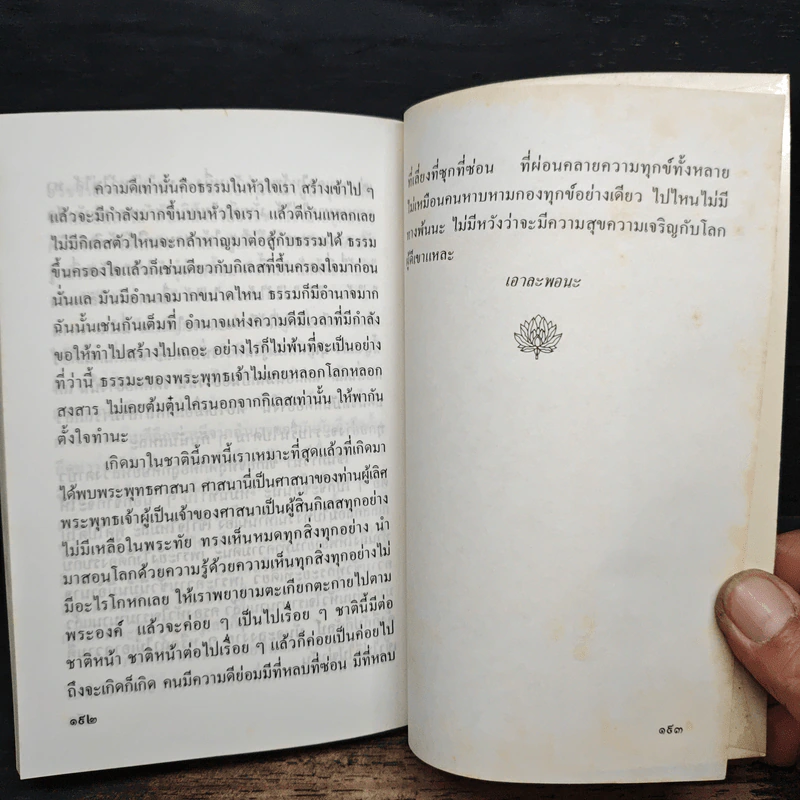 ความดีเท่านั้นคือธรรมในหัวใจเรา สร้างเข้าไป ๆ
แล้วจะมีกำลังมากขึ้นบนหัวใจเรา แล้วตีกันแหลกเลย
ไม่มีกิเลสตัวไหนจะกล้าหาญมาต่อสู้กับธรรมได้ ธรรม
ขึ้นครองใจแล้วก็เช่นเดียวกับกิเลสที่ขึ้นครองใจมาก่อน
นั่นแล มันมีอำนาจมากขนาดไหน ธรรมก็มีอำนาจมาก
ฉันนั้นเช่นกันเต็มที่ อำนาจแห่งความดีมีเวลาที่มีกำลัง
ขอให้ทำไปสร้างไปเถอะ อย่างไรก็ไม่พ้นที่จะเป็นอย่าง
ที่ว่านี้ ธรรมะของพระพุทธเจ้าไม่เคยหลอกโลกหลอก
สงสาร ไม่เคยต้มตุ๋นใครนอกจากกิเลสเท่านั้น ให้พากัน
ตั้งใจทำนะ
เกิดมาในชาตินี้ภพนี้เราเหมาะที่สุดแล้วที่เกิดมา
ได้พบพระพุทธศาสนา ศาสนานี่เป็นศาสนาของท่านผู้เลิศ
พระพุทธเจ้าผู้เป็นเจ้าของศาสนาเป็นผู้สิ้นกิเลสทุกอย่าง
ไม่มีเหลือในพระทัย ทรงเห็นหมดทุกสิ่งทุกอย่าง นำ
มาสอนโลกด้วยความรู้ด้วยความเห็นทุกสิ่งทุกอย่างไม่
มีอะไรโกหกเลย ให้เราพยายามตะเกียกตะกายไปตาม
พระองค์ แล้วจะค่อย ๆ เป็นไปเรื่อย ๆ ชาตินี้มีต่อ
ชาติหน้า ชาติหน้าต่อไปเรื่อย ๆ แล้วก็ค่อยเป็นค่อยไป
ถึงจะเกิดก็เกิด คนมีความดีย่อมมีที่หลบที่ซ่อน มีที่หลบ
๑๙๒
ที่เลี่ยงที่ซุกที่ซ่อน ที่ผ่อนคลายความทุกข์ทั้งหลาย
ไม่เหมือนคนหาบหามกองทุกข์อย่างเดียว ไปไหนไม่มี
ทางพ้นนะ ไม่มีหวังว่าจะมีความสุขความเจริญกับโลก
ผู้ดีเขาแหละ
เอาละพอนะ
๑๙๓